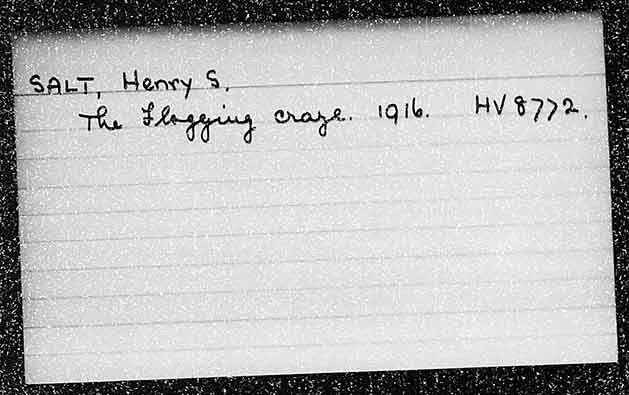 SALT, Henry S.
The Flogging craze. 1916. HV 8772.